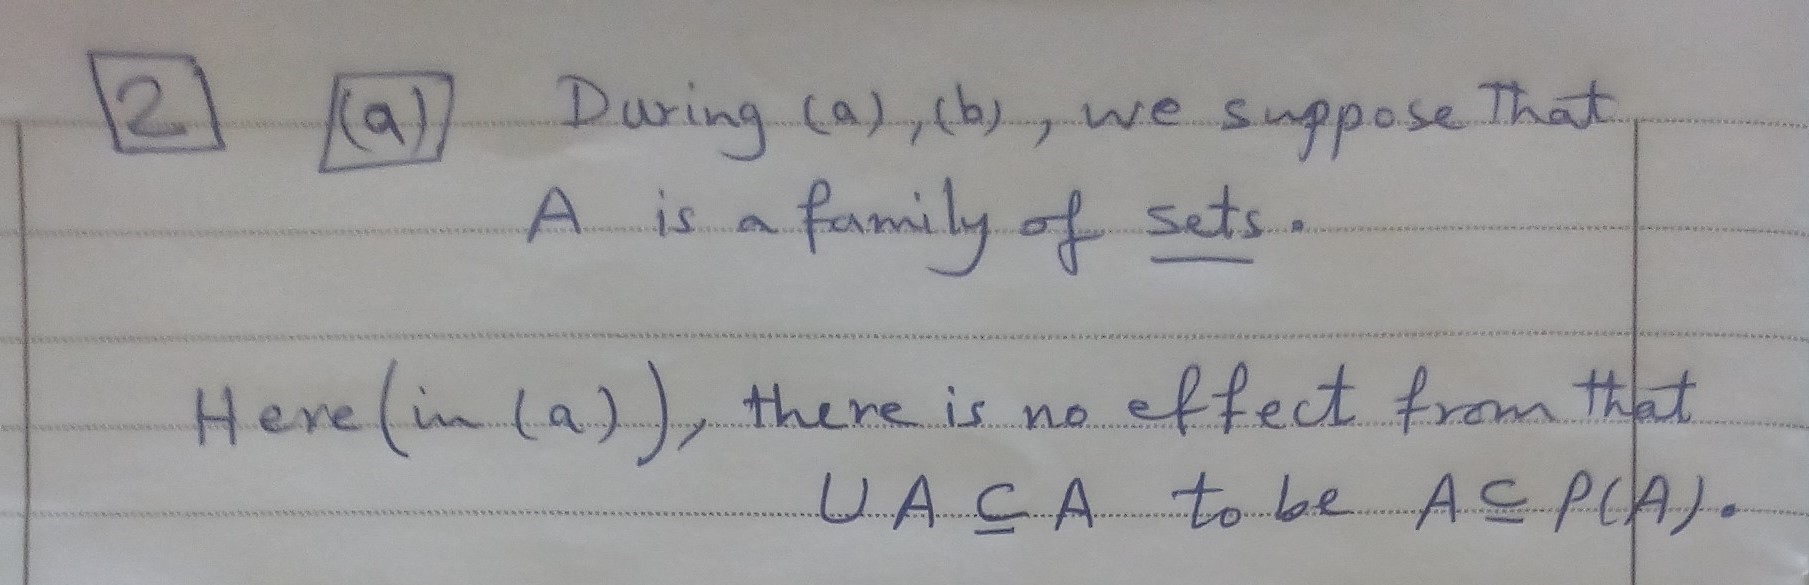 2 (a) During (a), (b), we suppose that
A is a family of sets.
Here (in (a)), there is no effect from that
∪A ⊆ A to be A ⊆ P(A).